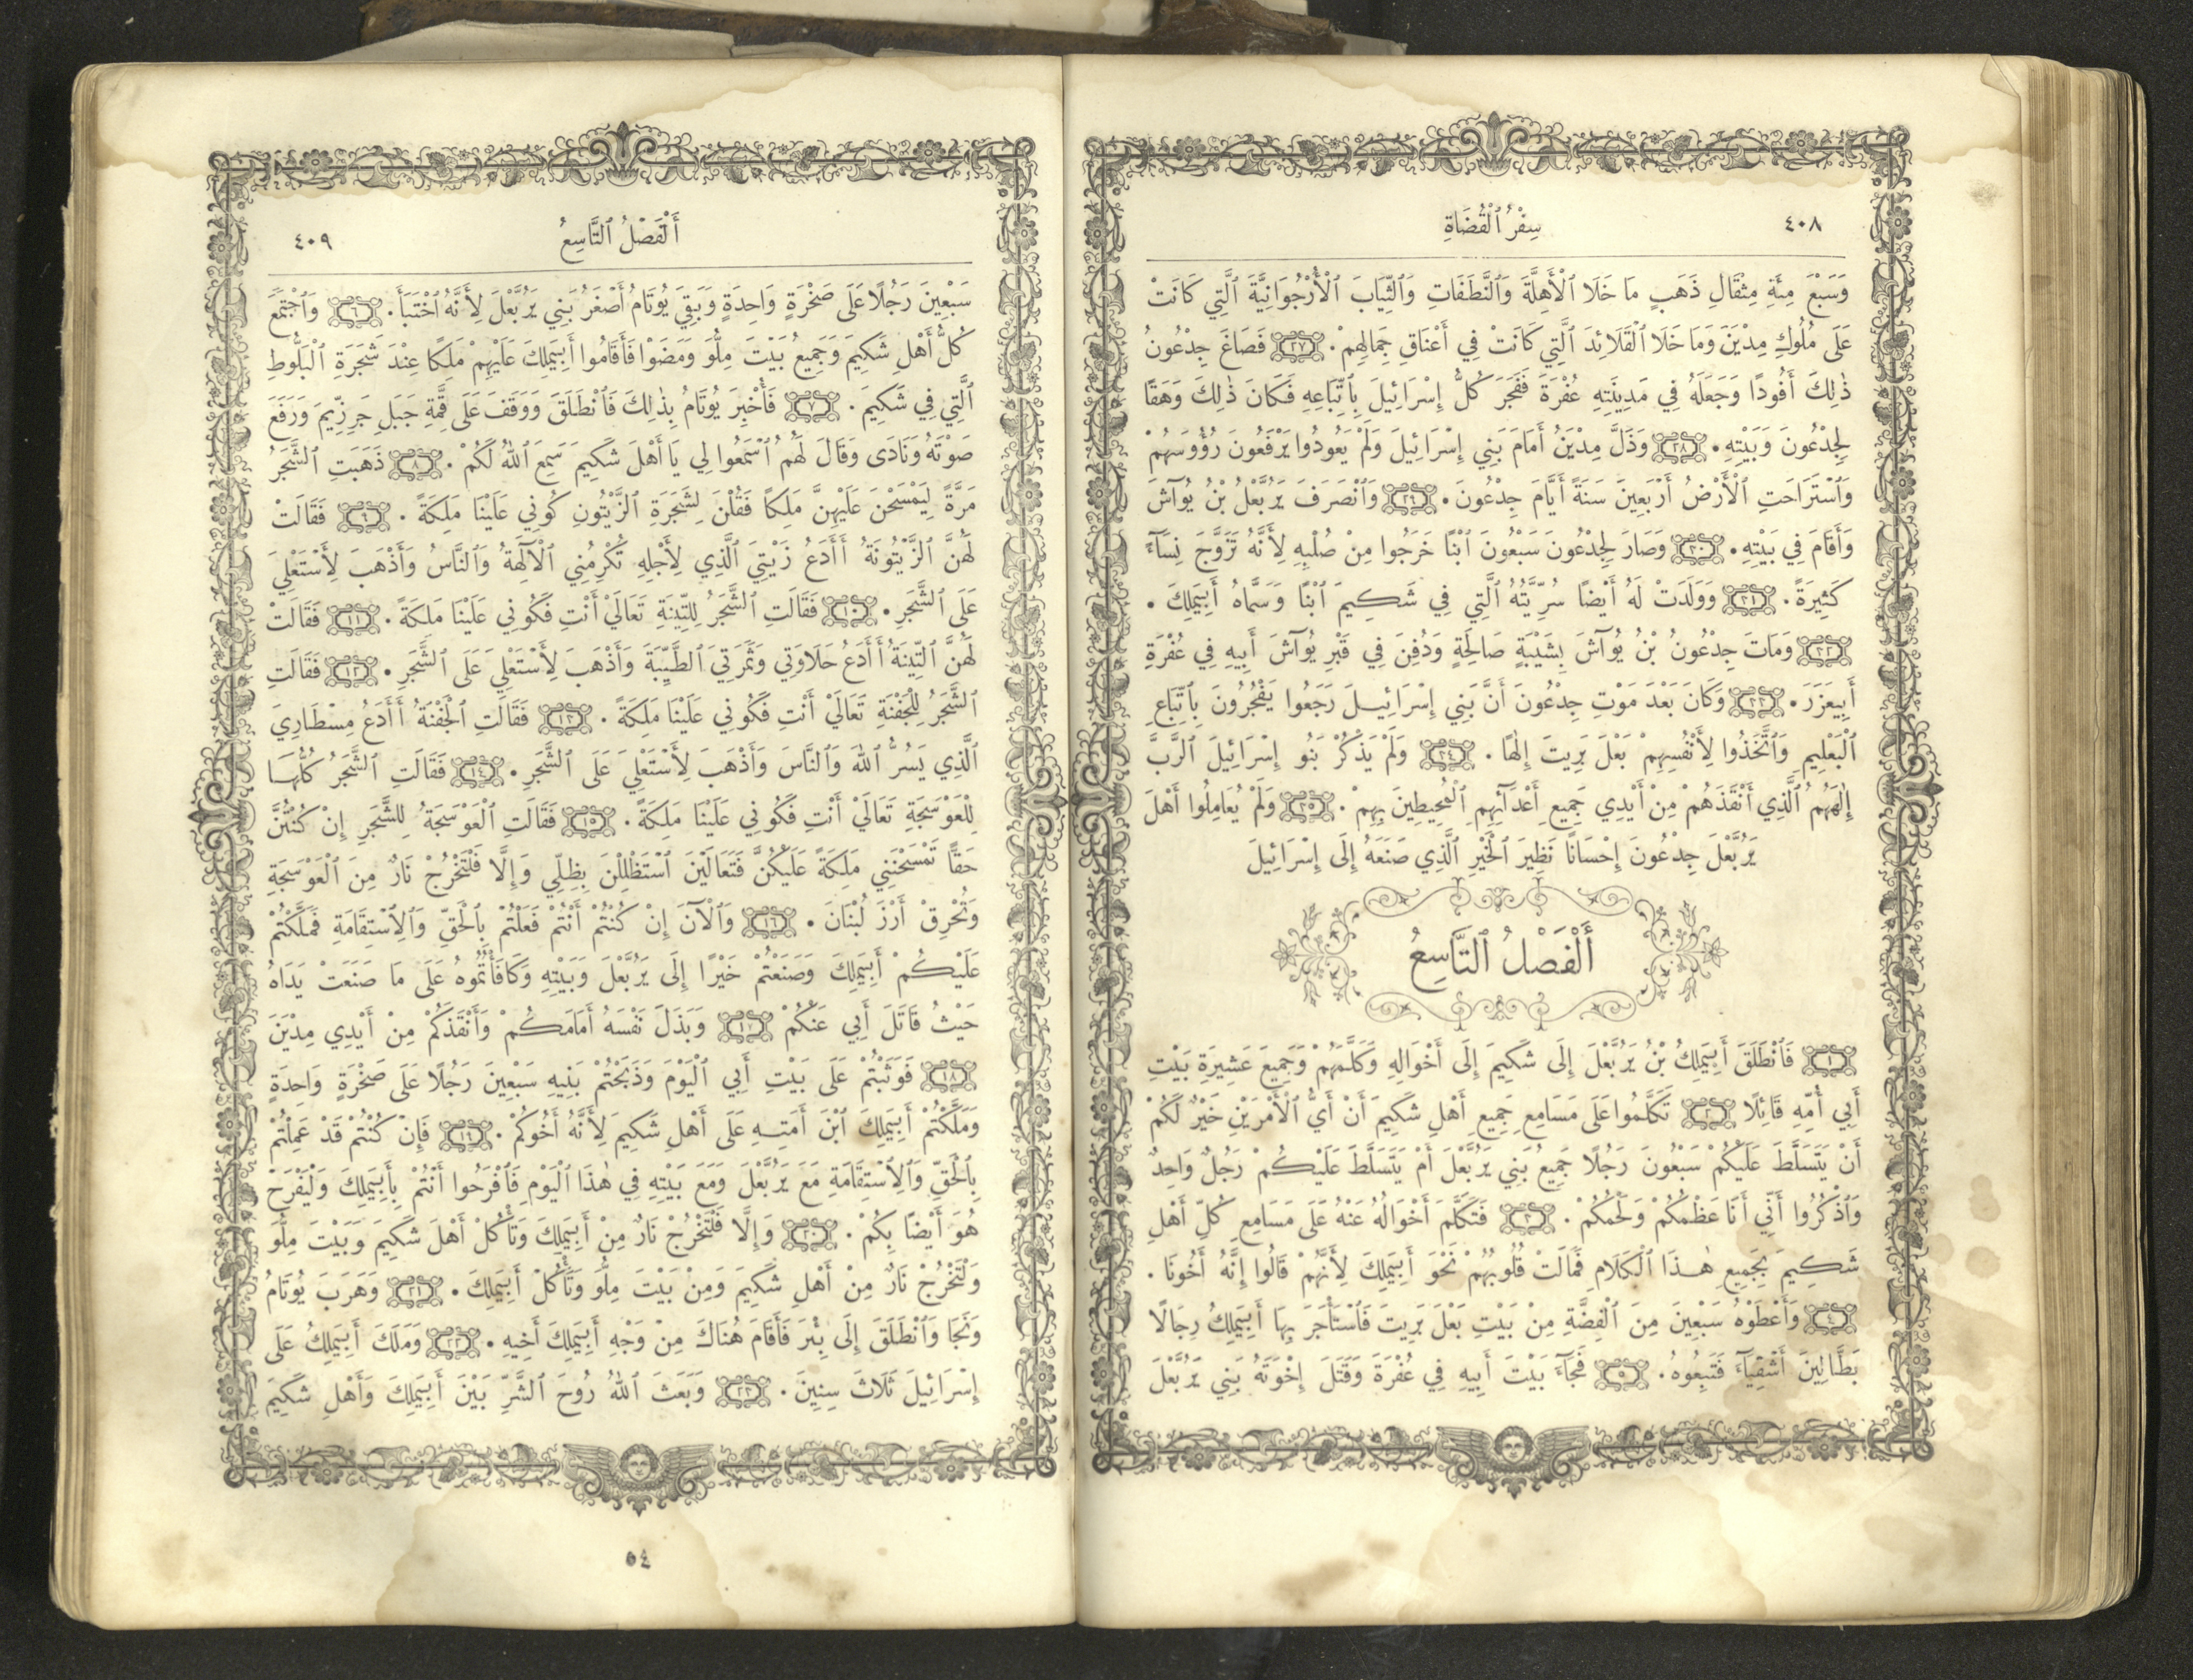 ٤٠٨
سِفْرُ ٱلْقُضَاةِ
وَسَبْعَ مِئَةِ مِثْقَالِ ذَهَبٍ مَا خَلَا ٱلْأَهِلَّةَ وَٱلنَّطَفَاتِ وَٱلثِّيَابَ ٱلْأُرْجُوَانِيَّةَ ٱلَّتِي كَانَتْ
عَلَى مُلُوكِ مِدْيَنَ وَمَا خَلَا ٱلْقَلَائِدَ ٱلَّتِي كَانَتْ فِي أَعْنَاقِ جِمَالِهِمْ. ٢٧ فَصَاغَ جِدْعُونُ
ذٰلِكَ أَفُودًا وَجَعَلَهُ فِي مَدِينَتِهِ عُفْرَةَ فَفَجَرَ كُلُّ إِسْرَائِيلَ بِٱتِّبَاعِهِ فَكَانَ ذٰلِكَ وَهَقًا
لِجِدْعُونَ وَبَيْتِهِ. ٢٨ وَذَلَّ مِدْيَنُ أَمَامَ بَنِي إِسْرَائِيلَ وَلَمْ يَعُودُوا يَرْفَعُونَ رُؤُوسَهُمْ
وَٱسْتَرَاحَتِ ٱلْأَرْضُ أَرْبَعِينَ سَنَةً أَيَّامَ جِدْعُونَ. ٢٩ وَٱنْصَرَفَ يَرُبَّعْلُ بْنُ يُوآشَ
وَأَقَامَ فِي بَيْتِهِ. ٣٠ وَصَارَ لِجِدْعُونَ سَبْعُونَ ٱبْنًا خَرَجُوا مِنْ صُلْبِهِ لِأَنَّهُ تَزَوَّجَ نِسَآءً
كَثِيرَةً. ٣١ وَوَلَدَتْ لَهُ أَيْضًا سُرِّيَّتُهُ ٱلَّتِي فِي شَكِيمَ ٱبْنًا وَسَمَّاهُ أَبِيمَلِكَ.
٣٢ وَمَاتَ جِدْعُونُ بْنُ يُوآشَ بِشَيْبَةٍ صَالِحَةٍ وَدُفِنَ فِي قَبْرِ يُوآشَ أَبِيهِ فِي عُفْرَةِ
أَبِيعَزَرَ. ٣٣ وَكَانَ بَعْدَ مَوْتِ جِدْعُونَ أَنَّ بَنِي إِسْرَائِيلَ رَجَعُوا يَفْجُرُونَ بِٱتِّبَاعِ
ٱلْبَعْلِيمِ وَٱتَّخَذُوا لِأَنْفُسِهِمْ بَعْلَ بَرِيتَ إِلٰهًا. ٣٤ وَلَمْ يَذْكُرْ بَنُو إِسْرَائِيلَ ٱلرَّبَّ
إِلٰهَهُمُ ٱلَّذِي أَنْقَذَهُمْ مِنْ أَيْدِي جَمِيعِ أَعْدَآئِهِمِ ٱلْمُحِيطِينَ بِهِمْ. ٣٥ وَلَمْ يُعَامِلُوا أَهْلَ
يَرُبَّعْلَ جِدْعُونَ إِحْسَانًا نَظِيرَ ٱلْخَيْرِ ٱلَّذِي صَنَعَهُ إِلَى إِسْرَائِيلَ
أَلْفَصْلُ ٱلتَّاسِعُ
١ فَٱنْطَلَقَ أَبِيمَلِكُ بْنُ يَرُبَّعْلَ إِلَى شَكِيمَ إِلَى أَخْوَالِهِ وَكَلَّمَهُمْ وَجَمِيعَ عَشِيرَةِ بَيْتِ
أَبِي أُمِّهِ قَائِلًا ٢ تَكَلَّمُوا عَلَى مَسَامِعِ جَمِيعِ أَهْلِ شَكِيمَ أَنْ أَيُّ ٱلْأَمْرَيْنِ خَيْرٌ لَكُمْ
أَنْ يَتَسَلَّطَ عَلَيْكُمْ سَبْعُونَ رَجُلًا جَمِيعُ بَنِي يَرُبَّعْلَ أَمْ يَتَسَلَّطَ عَلَيْكُمْ رَجُلٌ وَاحِدٌ
وَٱذْكُرُوا أَنِّي أَنَا عَظْمُكُمْ وَلَحْمُكُمْ. ٣ فَتَكَلَّمَ أَخْوَالُهُ عَنْهُ عَلَى مَسَامِعِ كُلِّ أَهْلِ
شَكِيمَ بِجَمِيعِ هٰذَا ٱلْكَلَامِ فَمَالَتْ قُلُوبُهُمْ نَحْوَ أَبِيمَلِكَ لِأَنَّهُمْ قَالُوا إِنَّهُ أَخُونَا.
٤ وَأَعْطَوْهُ سَبْعِينَ مِنَ ٱلْفِضَّةِ مِنْ بَيْتِ بَعْلَ بَرِيتَ فَٱسْتَأْجَرَ بِهَا أَبِيمَلِكُ رِجَالًا
بَطَّالِينَ أَشْقِيَآءَ فَتَبِعُوهُ. ٥ فَجَآءَ بَيْتَ أَبِيهِ فِي عُفْرَةَ وَقَتَلَ إِخْوَتَهُ بَنِي يَرُبَّعْلَ
أَلْفَصْلُ ٱلتَّاسِعُ
٤٠٩
سَبْعِينَ رَجُلًا عَلَى صَخْرَةٍ وَاحِدَةٍ وَبَقِيَ يُوتَامُ أَصْغَرُ بَنِي يَرُبَّعْلَ لِأَنَّهُ ٱخْتَبَأَ. ٦ وَٱجْتَمَعَ
كُلُّ أَهْلِ شَكِيمَ وَجَمِيعُ بَيْتَ مِلُّو وَمَضَوْا فَأَقَامُوا أَبِيمَلِكَ عَلَيْهِمْ مَلِكًا عِنْدَ شَجَرَةِ ٱلْبَلُّوطِ
ٱلَّتِي فِي شَكِيمَ. ٧ فَأُخْبِرَ يُوتَامُ بِذٰلِكَ فَٱنْطَلَقَ وَوَقَفَ عَلَى قِمَّةِ جَبَلِ جَرِزِّيمَ وَرَفَعَ
صَوْتَهُ وَنَادَى وَقَالَ لَهُمُ ٱسْمَعُوا لِي يَا أَهْلَ شَكِيمَ سَمِعَ ٱللهُ لَكُمْ. ٨ ذَهَبَتِ ٱلشَّجَرُ
مَرَّةً لِيَمْسَحْنَ عَلَيْهِنَّ مَلِكًا فَقُلْنَ لِشَجَرَةِ ٱلزَّيْتُونِ كُونِي عَلَيْنَا مَلِكَةً. ٩ فَقَالَتْ
لَهُنَّ ٱلزَّيْتُونَةُ أَأَدَعُ زَيْتِيَ ٱلَّذِي لِأَجْلِهِ تُكْرِمُنِي ٱلْآلِهَةُ وَٱلنَّاسُ وَأَذْهَبَ لِأَسْتَعْلِيَ
عَلَى ٱلشَّجَرِ. ١٠ فَقَالَتِ ٱلشَّجَرُ لِلتِّينَةِ تَعَالَيْ أَنْتِ فَكُونِي عَلَيْنَا مَلِكَةً. ١١ فَقَالَتْ
لَهُنَّ ٱلتِّينَةُ أَأَدَعُ حَلَاوَتِي وَثَمَرَتِيَ ٱلطَّيِّبَةَ وَأَذْهَبَ لِأَسْتَعْلِيَ عَلَى ٱلشَّجَرِ. ١٢ فَقَالَتِ
ٱلشَّجَرُ لِلْجَفْنَةِ تَعَالَيْ أَنْتِ فَكُونِي عَلَيْنَا مَلِكَةً. ١٣ فَقَالَتِ ٱلْجَفْنَةُ أَأَدَعُ مِسْطَارِيَ
ٱلَّذِي يَسُرُّ ٱللهَ وَٱلنَّاسَ وَأَذْهَبَ لِأَسْتَعْلِيَ عَلَى ٱلشَّجَرِ. ١٤ فَقَالَتِ ٱلشَّجَرُ كُلُّهَا
لِلْعَوْسَجَةِ تَعَالَيْ أَنْتِ فَكُونِي عَلَيْنَا مَلِكَةً. ١٥ فَقَالَتِ ٱلْعَوْسَجَةُ لِلشَّجَرِ إِنْ كُنْتُنَّ
حَقًّا تَمْسَحْنَنِي مَلِكَةً عَلَيْكُنَّ فَتَعَالَيْنَ ٱسْتَظْلِلْنَ بِظِلِّي وَإِلَّا فَلْتَخْرُجْ نَارٌ مِنَ ٱلْعَوْسَجَةِ
وَتُحْرِقْ أَرْزَ لُبْنَانَ. ١٦ وَٱلْآنَ إِنْ كُنْتُمْ أَنْتُمْ فَعَلْتُمْ بِٱلْحَقِّ وَٱلِٱسْتِقَامَةِ فَمَلَّكْتُمْ
عَلَيْكُمْ أَبِيمَلِكَ وَصَنَعْتُمْ خَيْرًا إِلَى يَرُبَّعْلَ وَبَيْتِهِ وَكَافَأْتُمُوهُ عَلَى مَا صَنَعَتْ يَدَاهُ
حَيْثُ قَاتَلَ أَبِي عَنْكُمْ ١٧ وَبَذَلَ نَفْسَهُ أَمَامَكُمْ وَأَنْقَذَكُمْ مِنْ أَيْدِي مِدْيَنَ
١٨ فَوَثَبْتُمْ عَلَى بَيْتِ أَبِي ٱلْيَوْمَ وَذَبَحْتُمْ بَنِيهِ سَبْعِينَ رَجُلًا عَلَى صَخْرَةٍ وَاحِدَةٍ
وَمَلَّكْتُمْ أَبِيمَلِكَ ٱبْنَ أَمَتِهِ عَلَى أَهْلِ شَكِيمَ لِأَنَّهُ أَخُوكُمْ. ١٩ فَإِنْ كُنْتُمْ قَدْ عَمِلْتُمْ
بِٱلْحَقِّ وَٱلِٱسْتِقَامَةِ مَعَ يَرُبَّعْلَ وَمَعَ بَيْتِهِ فِي هٰذَا ٱلْيَوْمِ فَٱفْرَحُوا أَنْتُمْ بِأَبِيمَلِكَ وَلْيَفْرَحْ
هُوَ أَيْضًا بِكُمْ. ٢٠ وَإِلَّا فَلْتَخْرُجْ نَارٌ مِنْ أَبِيمَلِكَ وَتَأْكُلْ أَهْلَ شَكِيمَ وَبَيْتَ مِلُّو
وَلْتَخْرُجْ نَارٌ مِنْ أَهْلِ شَكِيمَ وَمِنْ بَيْتَ مِلُّو وَتَأْكُلْ أَبِيمَلِكَ. ٢١ وَهَرَبَ يُوتَامُ
وَنَجَا وَٱنْطَلَقَ إِلَى بِئْرَ فَأَقَامَ هُنَاكَ مِنْ وَجْهِ أَبِيمَلِكَ أَخِيهِ. ٢٢ وَمَلَكَ أَبِيمَلِكُ عَلَى
إِسْرَائِيلَ ثَلَاثَ سِنِينَ. ٢٣ وَبَعَثَ ٱللهُ رُوحَ ٱلشَّرِّ بَيْنَ أَبِيمَلِكَ وَأَهْلِ شَكِيمَ
٥٤